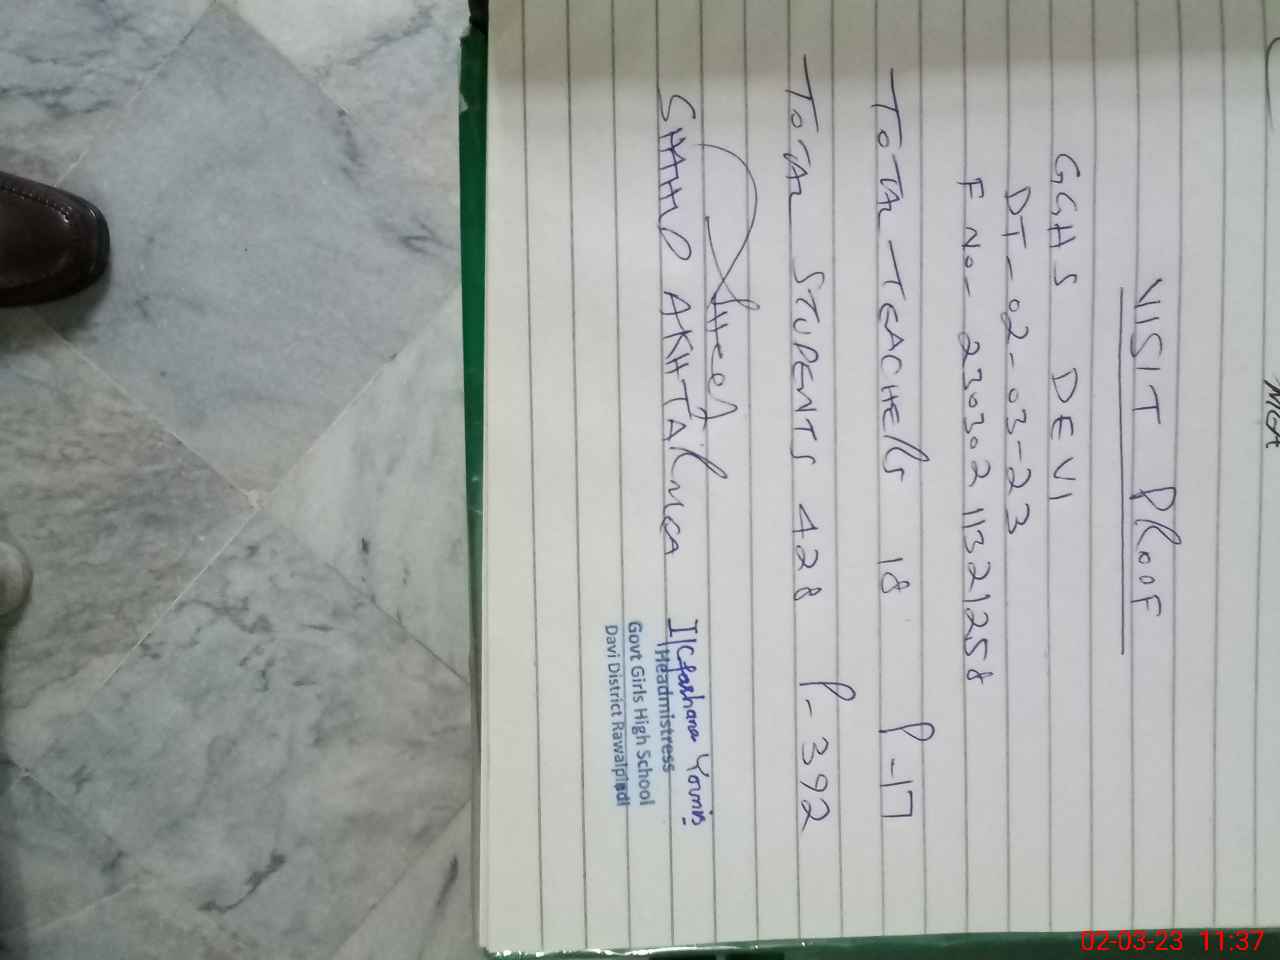 VISIT PROOF
GGHS DEVI
DT-02-03-23
F No- 230302 11321258
TOTAL TEACHERS 18 P-17
TOTAL STUDENTS 428 P-392
SHAHID AKHTAR MEA
I/C Farhana Younis
Headmistress
Govt Girls High School
Davi District Rawalpindi
MEA
02-03-23 11:37